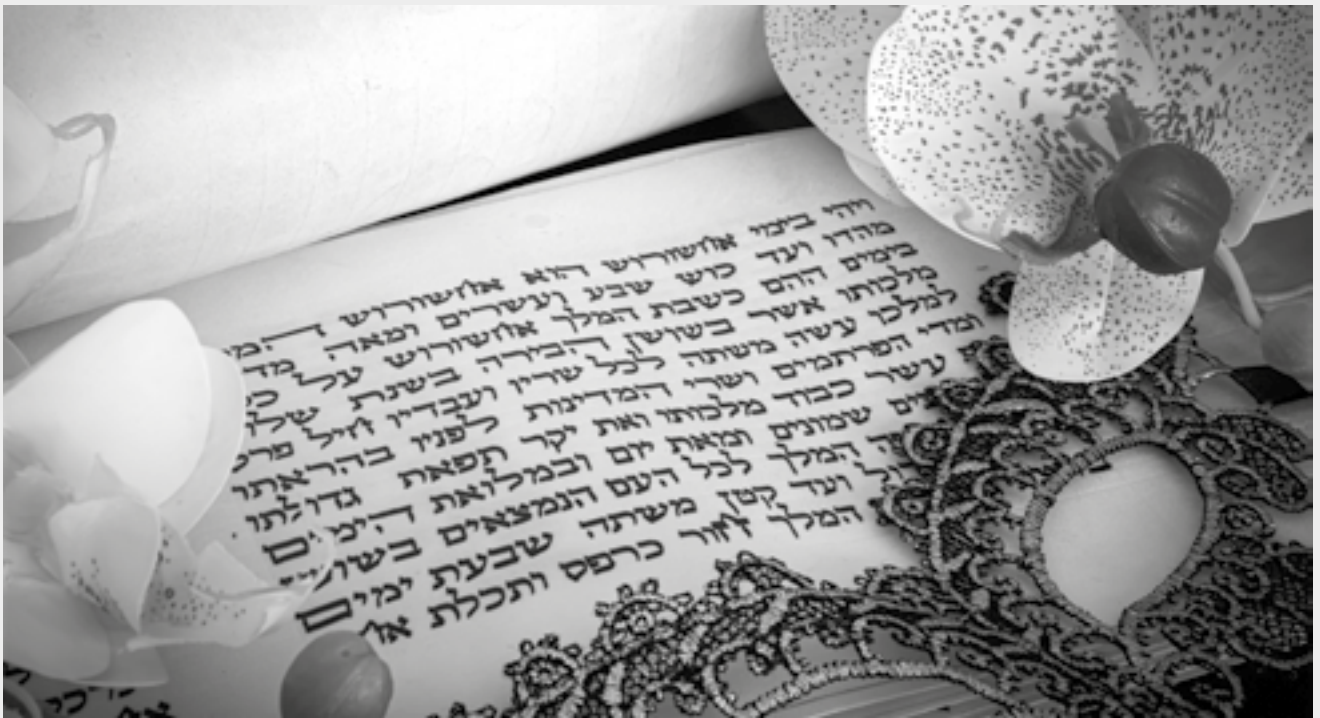 ויהי בימי אחשורוש הוא אחשורוש
מהדו ועד כוש שבע ועשרים ומאה
בימים ההם כשבת המלך אחשורוש על
מלכותו אשר בשושן הבירה בשנת
למלכו עשה משתה לכל שריו ועבדיו חיל פרס
ומדי הפרתמים ושרי המדינות לפניו בהראתו
עשר כבוד מלכותו ואת יקר תפארת גדולתו
שמונים ומאת יום ובמלואת הימים
המלך לכל העם הנמצאים
ועד קטן משתה שבעת ימים
המלך חור כרפס ותכלת